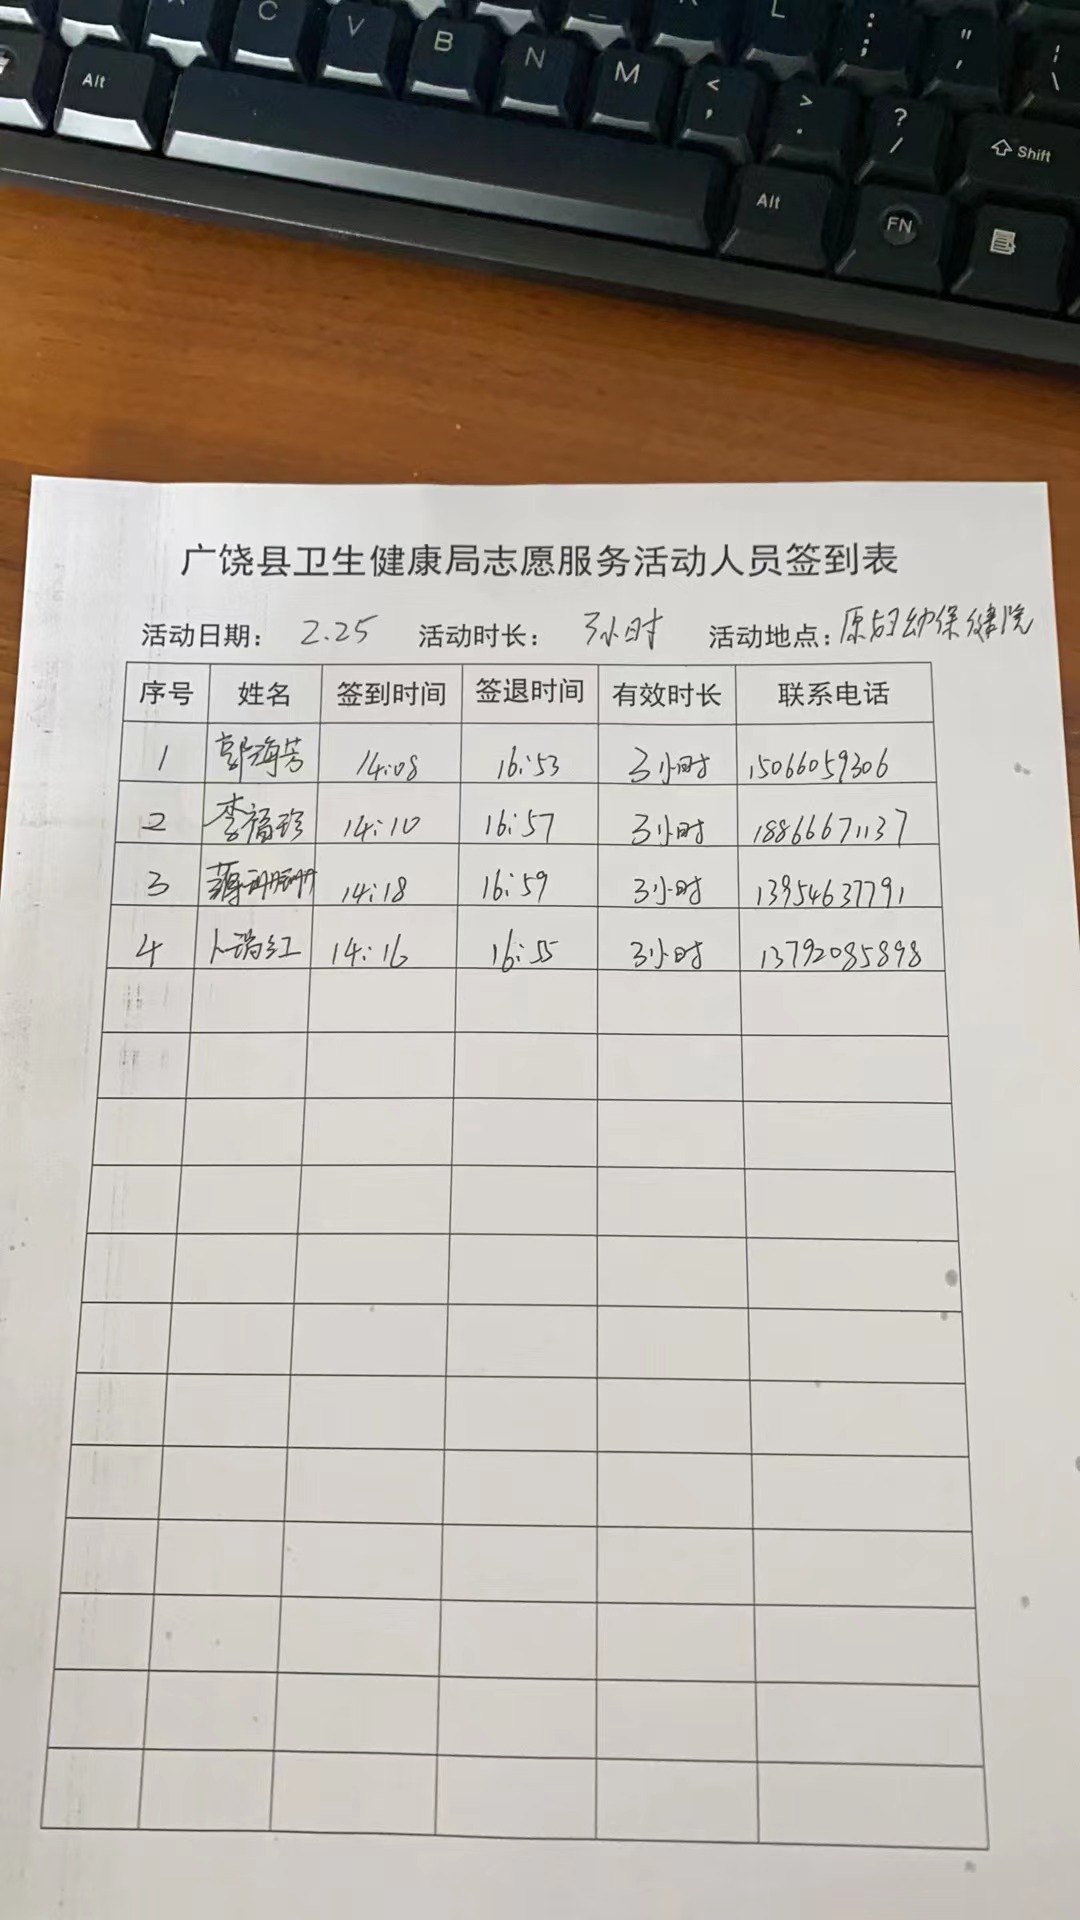 C V B N M < , > . ? / L : ; " ' | \
Alt Alt FN Shift
广饶县卫生健康局志愿服务活动人员签到表
活动日期： 2.25 活动时长： 3小时 活动地点：原妇幼保健院
序号 姓名 签到时间 签退时间 有效时长 联系电话
1 郭海芳 14:08 16:53 3小时 15066059306
2 李福珍 14:10 16:57 3小时 18866671137
3 14:18 16:59 3小时 13954637791
4 卜瑞红 14:16 16:55 3小时 13792085898